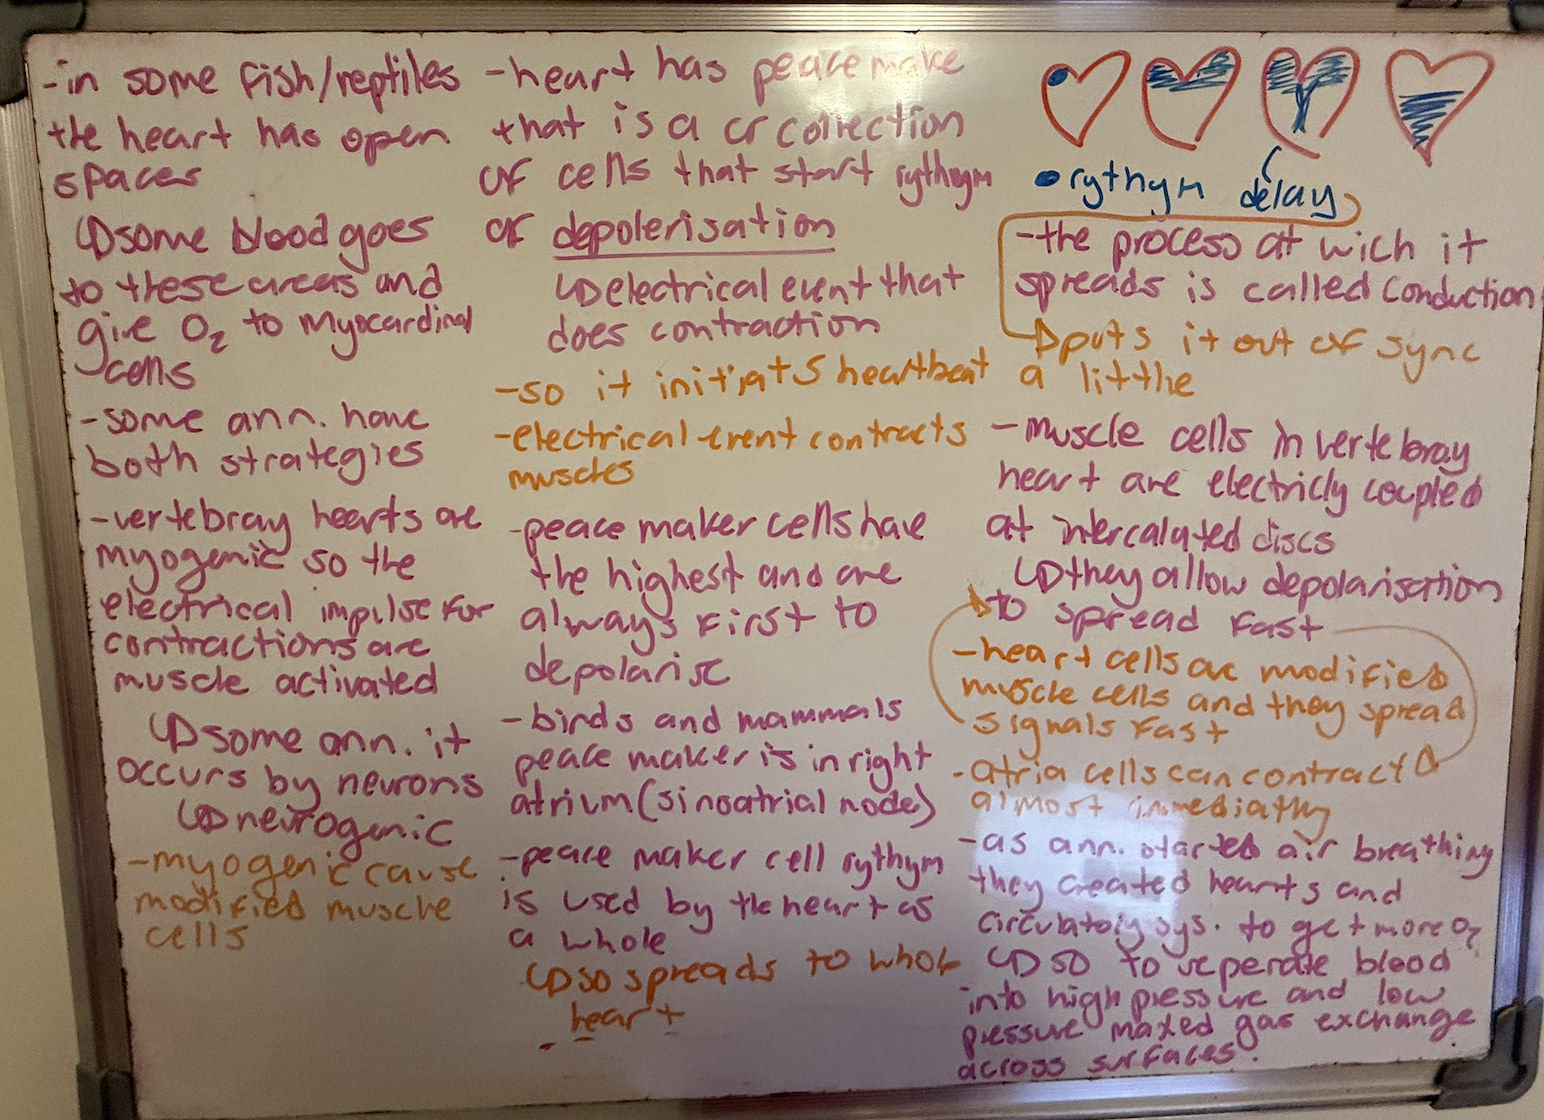 -in some fish/reptiles
the heart has open
spaces
↳some blood goes
to these areas and
give O₂ to myocardinal
cells
-some ann. have
both strategies
-vertebray hearts are
myogenic so the
electrical impulse for
contractions are
muscle activated
↳some ann. it
occurs by neurons
↳neurogenic
-myogenic cause
modified muscle
cells
-heart has peace make
that is a cr correction
of cells that start rythym
or depolerisation
↳electrical event that
does contraction
-so it initiats heartbeat
-electrical event contracts
muscles
-peace maker cells have
the highest and are
always first to
depolarise
-birds and mammals
peace maker is in right
atrium (sinoatrial node)
-peace maker cell rythym
is used by the heart as
a whole
↳so spreads to whole
heart
rythym delay
-the process at wich it
spreads is called conduction
↳puts it out of sync
a litthe
-muscle cells in vertebray
heart are electricly coupled
at intercalated discs
↳they allow depolarisation
to spread fast
-heart cells are modified
muscle cells and they spread
signals fast
-atria cells can contract
almost immediatly
-as ann. started air breathing
they created hearts and
circulatory sys. to get more O₂
↳so to seperate blood
into high pressure and low
pressure maxed gas exchange
across surfaces.